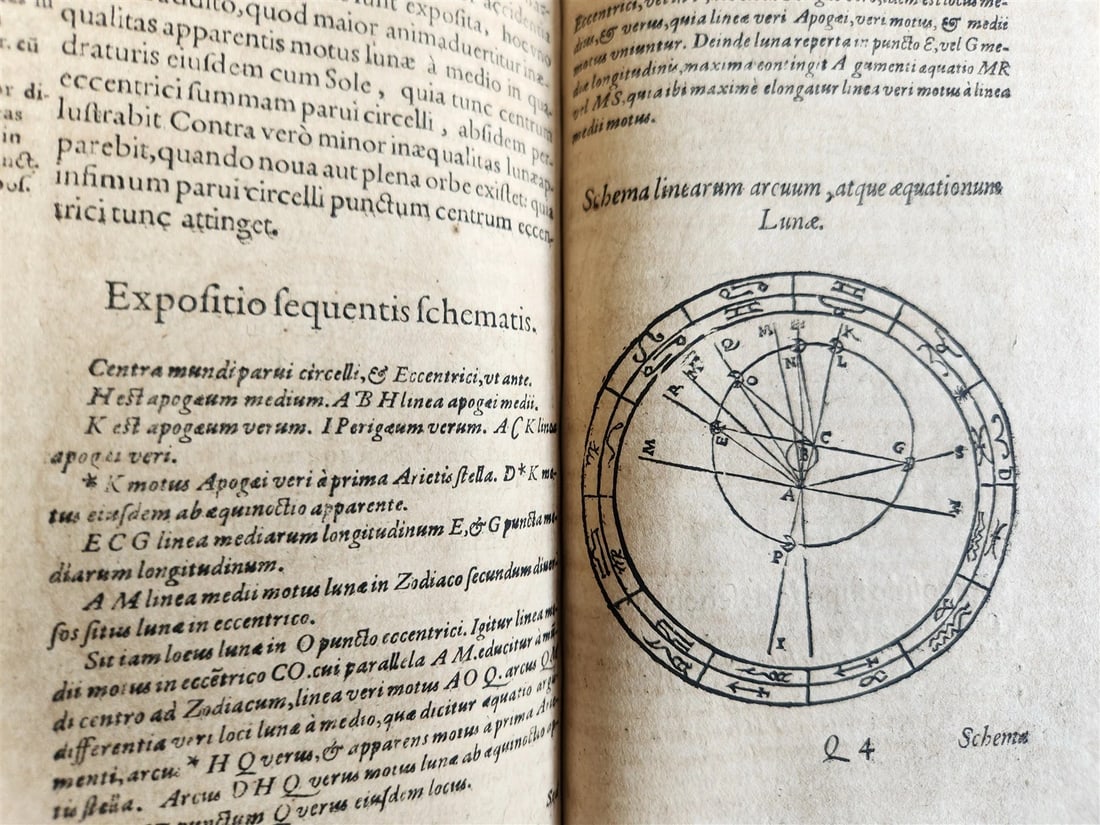 expoſita, hoc vno
quod maior animaduertitur inæ-
qualitas apparentis motus lunæ à medio in qua-
r. cū
draturis eiuſdem cum Sole, quia tunc centrum
eccentrici ſummam parui circelli, abſidem per-
luſtrabit Contra verò minor inæqualitas lunæ ap-
parebit, quando noua aut plena orbe exiſtet: quia
infimum parui circelli punctum centrum eccen-
trici tunc attinget.
r di-
as
in
nct.
Expoſitio ſequentis ſchematis.
Centra mundi parui circelli, & Eccentrici, vt ante.
H eſt apogæum medium. A B H linea apogæi medii.
K eſt apogæum verum. I Perigæum verum. A C K linea
apogæi veri.
* K motus Apogæi veri à prima Arietis ſtella. D * K mo-
tus eiuſdem ab æquinoctio apparente.
E C G linea mediarum longitudinum E, & G puncta me-
diarum longitudinum.
A M linea medii motus lunæ in Zodiaco ſecundum diuer-
ſos ſitus lunæ in eccentrico.
Sit iam locus lunæ in O puncto eccentrici. Igitur linea me-
dii motus in eccētrico CO. cui parallela A M. educitur à mū-
di centro ad Zodiacum, linea veri motus AO Q. arcus Q M
differentia veri loci lunæ à medio, quæ dicitur æquatio argu-
menti, arcus * H Q verus, & apparens motus à prima Arie-
tis ſtella. Arcus D H Q verus motus lunæ ab æquinoctio ap-
punctum Q verus eiuſdem locus.
Eccentrici,
dius, & verus, quia lineæ veri Apogæi, veri motus, & medii
motus vniuntur. Deinde luna reperta in puncto E, vel G me-
diæ longitudinis, maxima contingit A gumenti æquatio MR
vel MS, quia ibi maximè elongatur linea veri motus à linea
medii motus.
Schema linearum arcuum, atque æquationum
Lunæ.
M
K
Q
N
L
M
R
O
M
E
C
B
G
S
D
A
M
I
Q 4
Schema